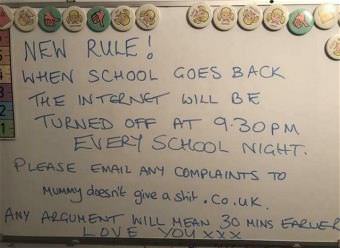 NEW RULE!
WHEN SCHOOL GOES BACK
THE INTERNET WILL BE
TURNED OFF AT 9.30PM
EVERY SCHOOL NIGHT.
PLEASE EMAIL ANY COMPLAINTS TO
Mummy doesn't give a shit.co.uk.
ANY ARGUMENT WILL MEAN 30 MINS EARLIER
LOVE YOU XXX